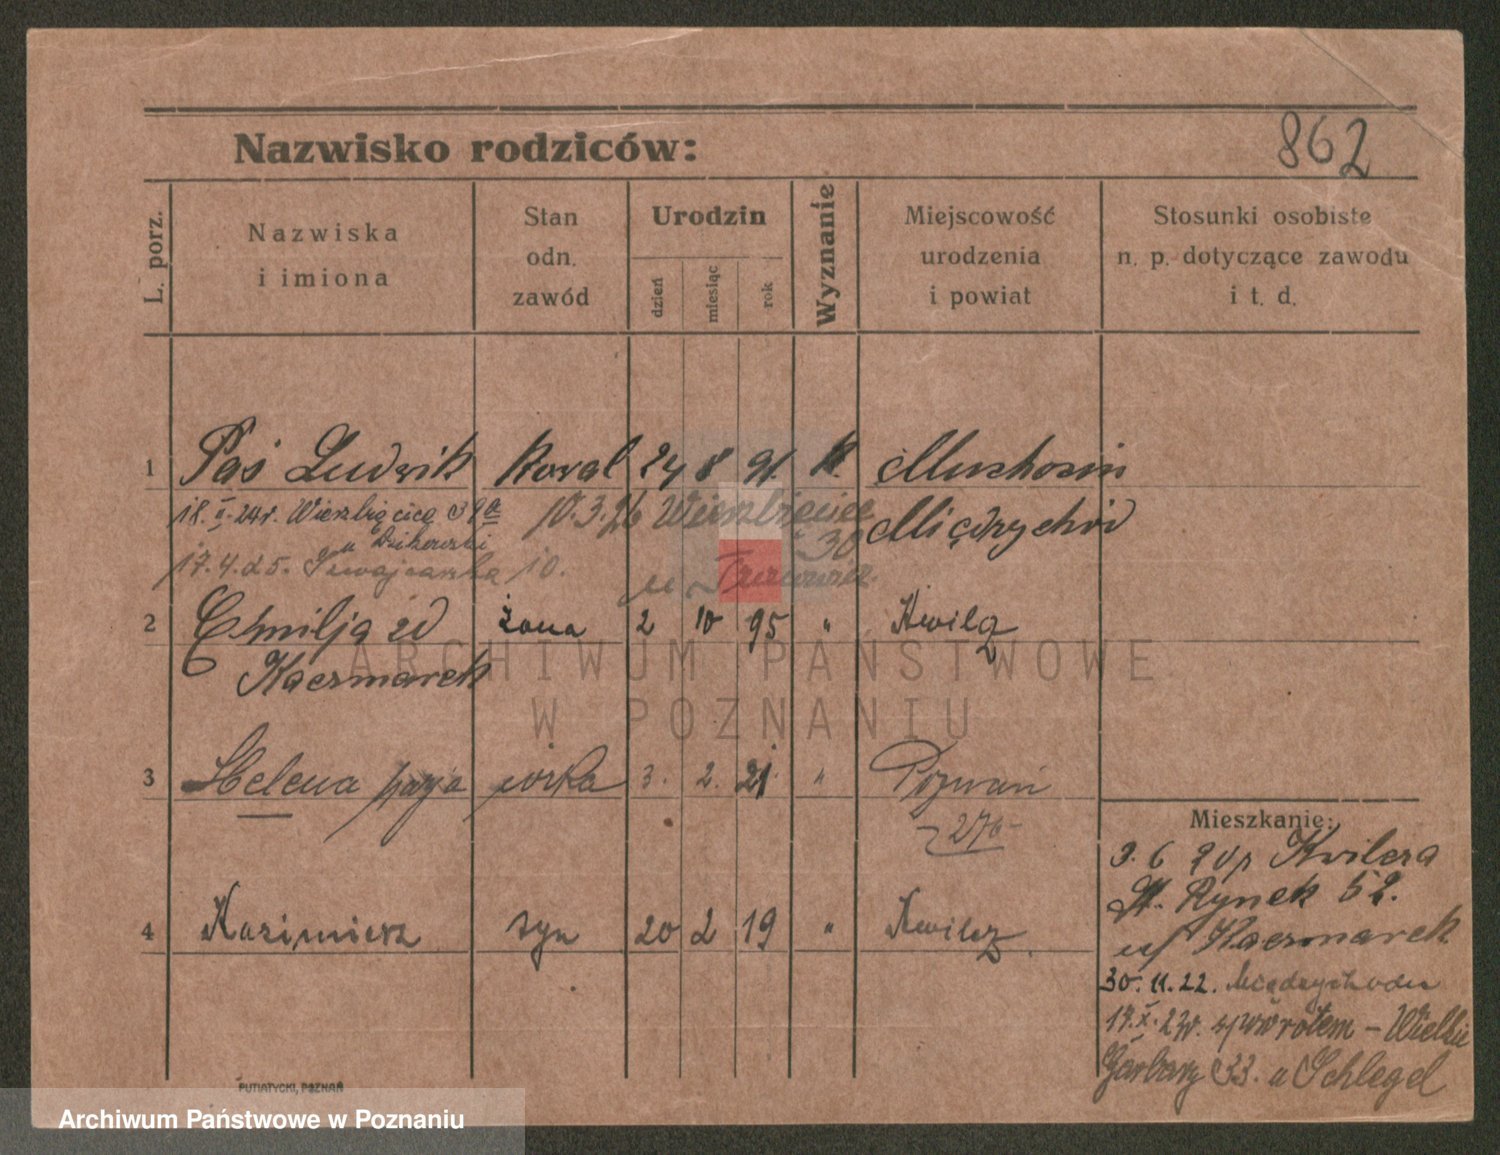 862
Nazwisko rodziców:
L. porz.
Nazwiska
i imiona
Stan
odn.
zawód
Urodzin
dzień
miesiąc
rok
Wyznanie
Miejscowość
urodzenia
i powiat
Stosunki osobiste
n. p. dotyczące zawodu
i t. d.
1 Paś Ludwik Koval 24 8 91. k. Muchocin
18. II. 24r. Wierzbięcice 39a 10.3.26 Wierzbięcice Międzychód
u Dzikowski 30
17.4.25. 10. u
2 Emilja zd żona 2 10 95 " Kwilcz
Kaczmarek
ARCHIWUM PAŃSTWOWE
W POZNANIU
3 Helena córka 3. 2. 21. " Poznań
276
4 Kazimierz syn 20 2 19 " Kwilcz
Mieszkanie:
9.6 20 Kwilcza
St. Rynek 52.
u/ Kaczmarek
30.11.22. Międzychodu
17.X.23r. zpowrotem - Wielkie
Garbary 33. u Schlegel
PUTIATYCKI, POZNAŃ
Archiwum Państwowe w Poznaniu